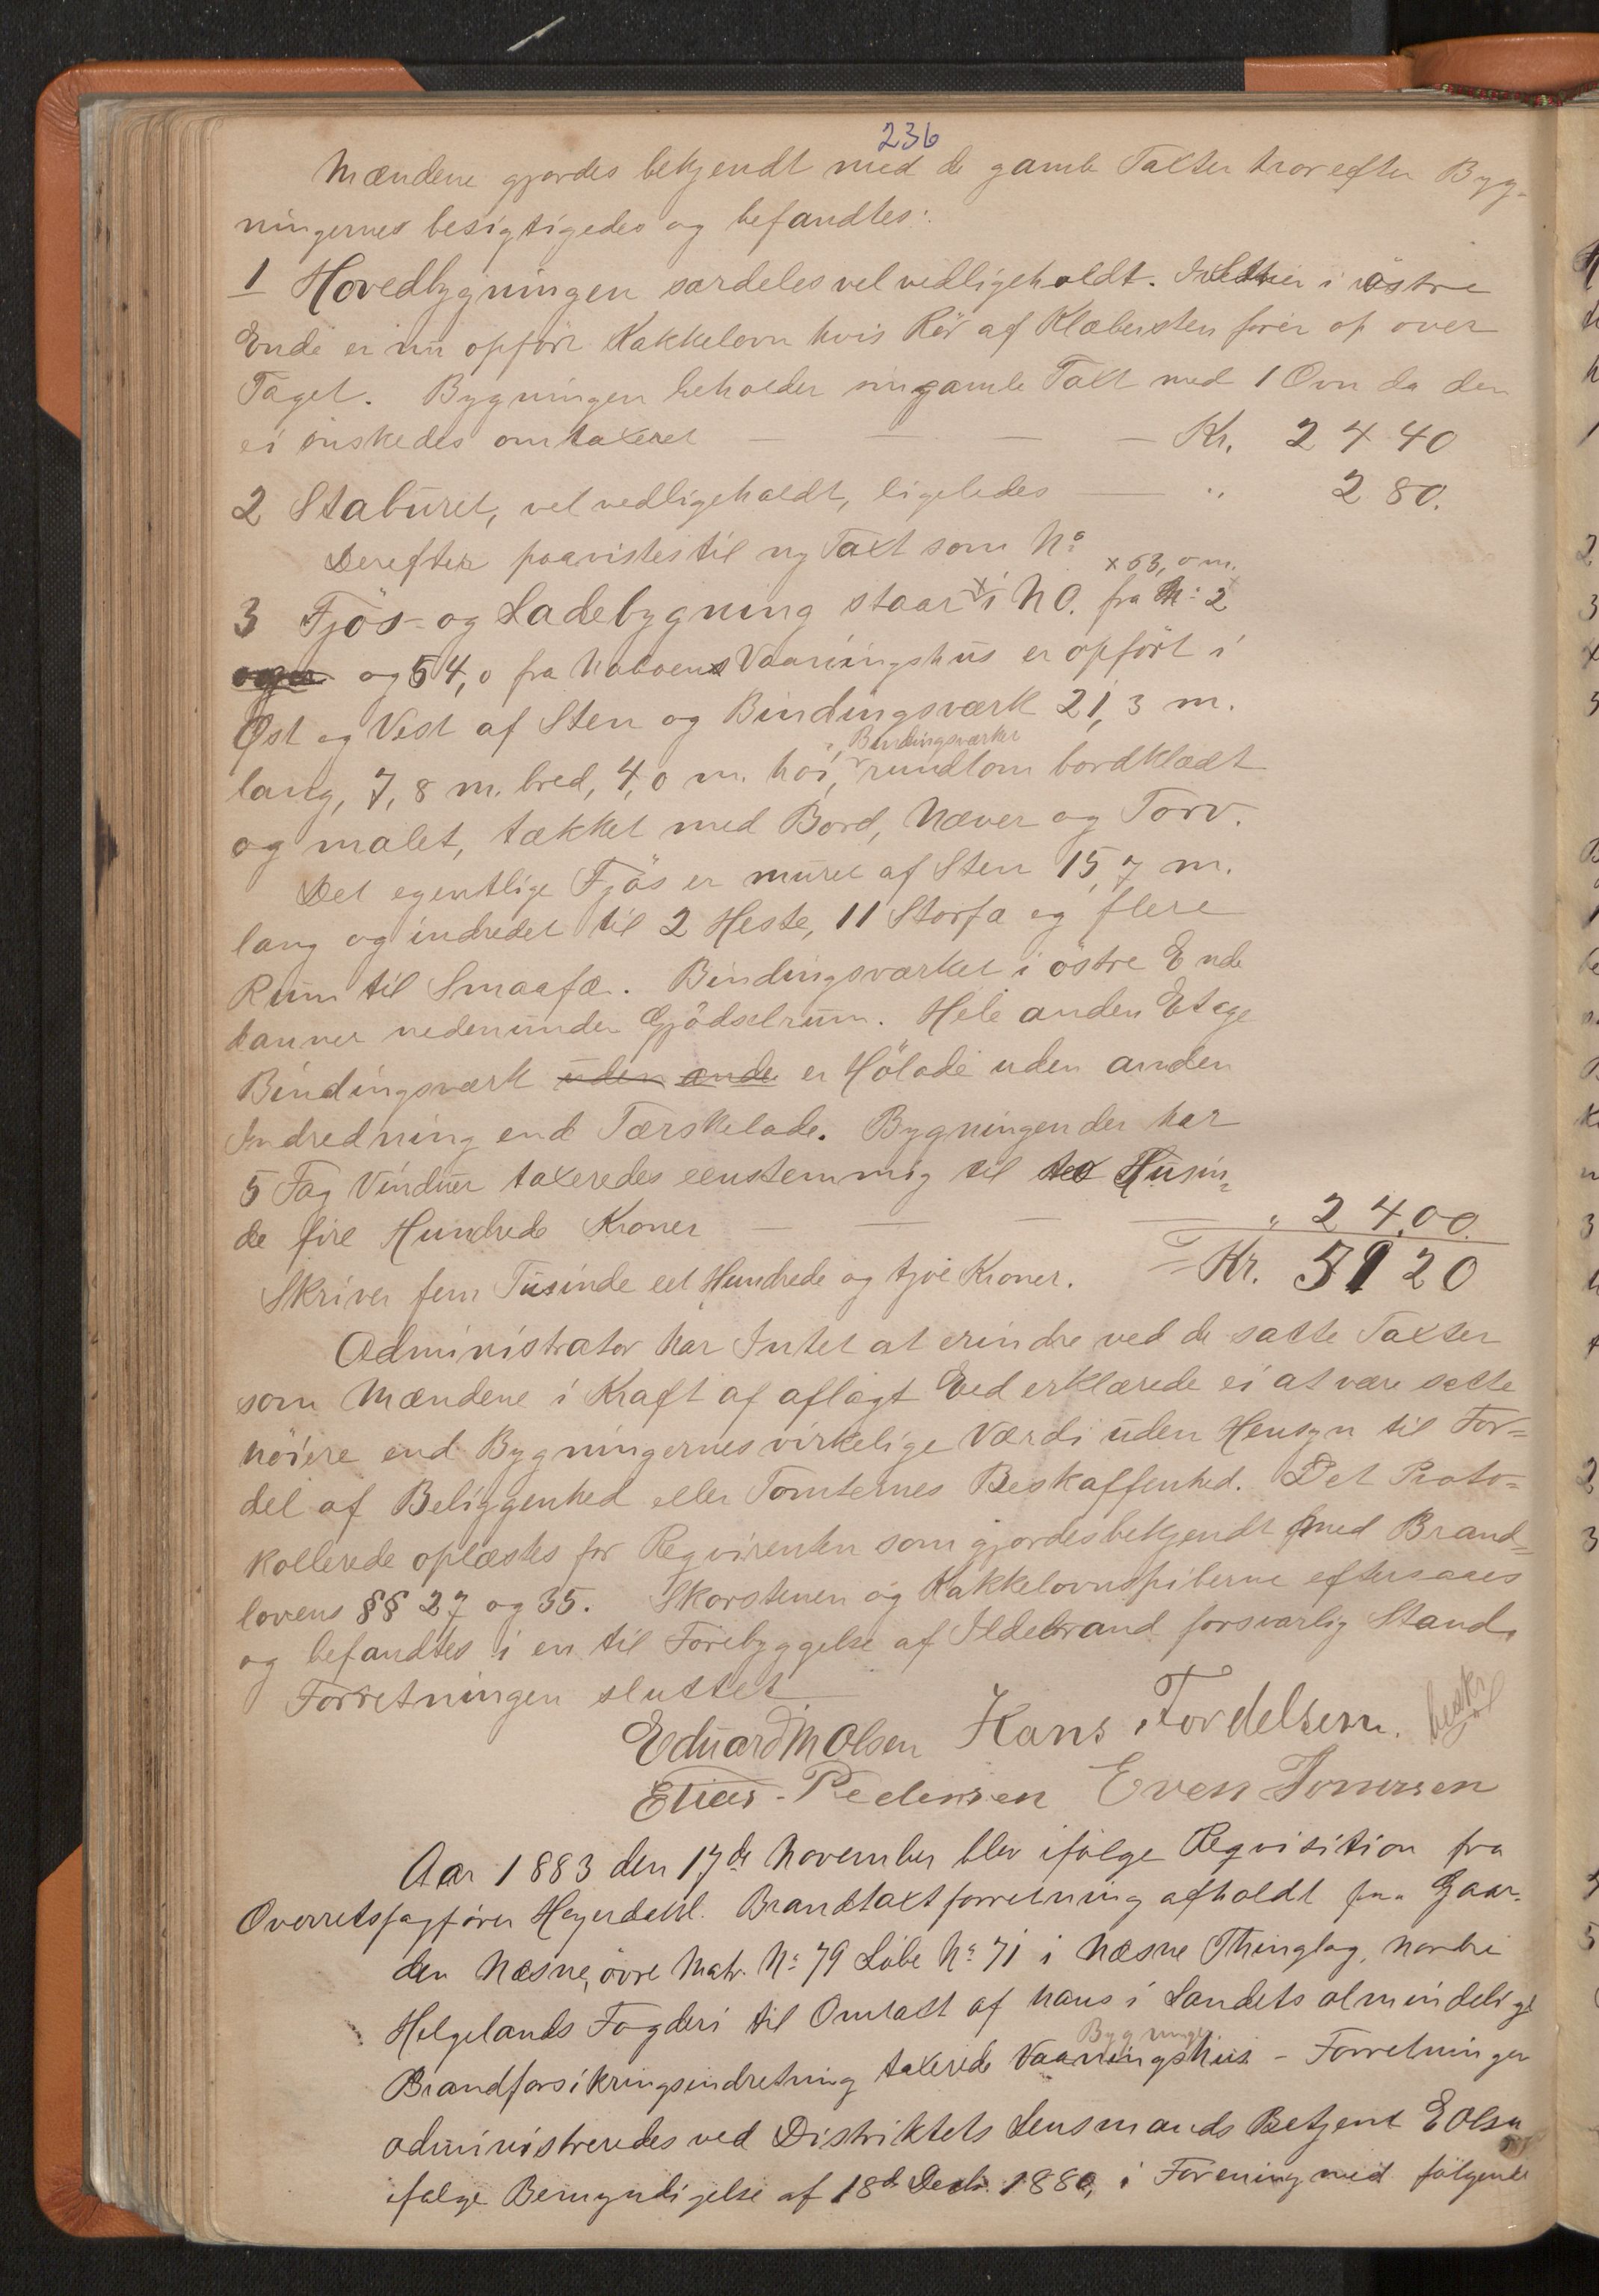 236
Mændene gjordes bekjendt med de gamle Taxter hvorefter Byg-
ningernes besigtigedes og befandtes:
1 Hovedbygningen særdeles vel vedligeholdt. i östre
Ende er nu opfört Kakkelovn hvis Rör af Klæbersten förer op over
Taget. Bygningen beholder sin gamle Taxt med 1 Ovn da den
ei önskedes omtaxeret — — — Kr. 2440
2 Staburet, vel vedligeholdt, ligeledes — " 280.
Derefter paavistes til ny Taxt som No
x 63,0 m.
3 Fjös- og Ladebygning staar x i NO. fra No 2
og 54,0 fra Naboens Vaaningshus er opfört i
Øst og Vest af Sten og Bindingsværk 21,3 m.
Bindingsværket
lang, 7,8 m. bred, 4,0 m. höi, rundtom bordklædt
og malet, tækket med Bord, Næver og Torv.
Det egentlige Fjös er muret af Sten 15,7 m.
lang og indredet til 2 Heste, 11 Storfæ og flere
Rum til Smaafæ. Bindingsværket i östre Ende
danner nedenunder Gjödselrum. Hele anden Etage
Bindingsværk uden ande er Hölade uden anden
Indredning end Tærskelade. Bygningen der har
5 Fag Vinduer taxeredes eenstemmig til to Tusin-
de fire Hundrede Kroner — — — — " 2400.
Skriver fem Tusinde eet Hundrede og tyve Kroner. = Kr. 5120
Administrator har Intet at erindre ved de satte Taxter
som Mændene i Kraft af aflagt Eed erklærede ei at være satte
höiere end Bygningernes virkelige Værdi uden Hensyn til For=
del af Beliggenhed eller Tomternes Beskaffenhed. Det Proto=
kollerede oplæstes for Reqvirenten som gjordes bekjendt med Brand=
lovens §§ 27 og 35. Skorstenen og Kakkelovnspiberne eftersaaes
og befandtes i en til Forebyggelse af Ildebrand forsvarlig Stand.
Forretningen sluttet
Eduard M Olsen Hans Fordelsen. beskr
Elias Pedersen Even Tommesen
Aar 1883 den 17de November blev ifölge Reqvisition fra
Overretssagförer Heyerdahl. Brandtaxtforretning afholdt paa Gaar-
den Næsne, övre Matr. No 79 Löbe No 71 i Næsne Thinglag, nordre
Helgelands Fogderi til Omtaxt af hans i Landets almindelige
Bygninger.
Brandforsikringsindretning taxerede Vaaningshus - Forretningen
administreredes ved Distriktets Lensmands Betjent E Olsen
ifölge Bemyndigelse af 18de Decbr. 1880, i Forening med fölgende